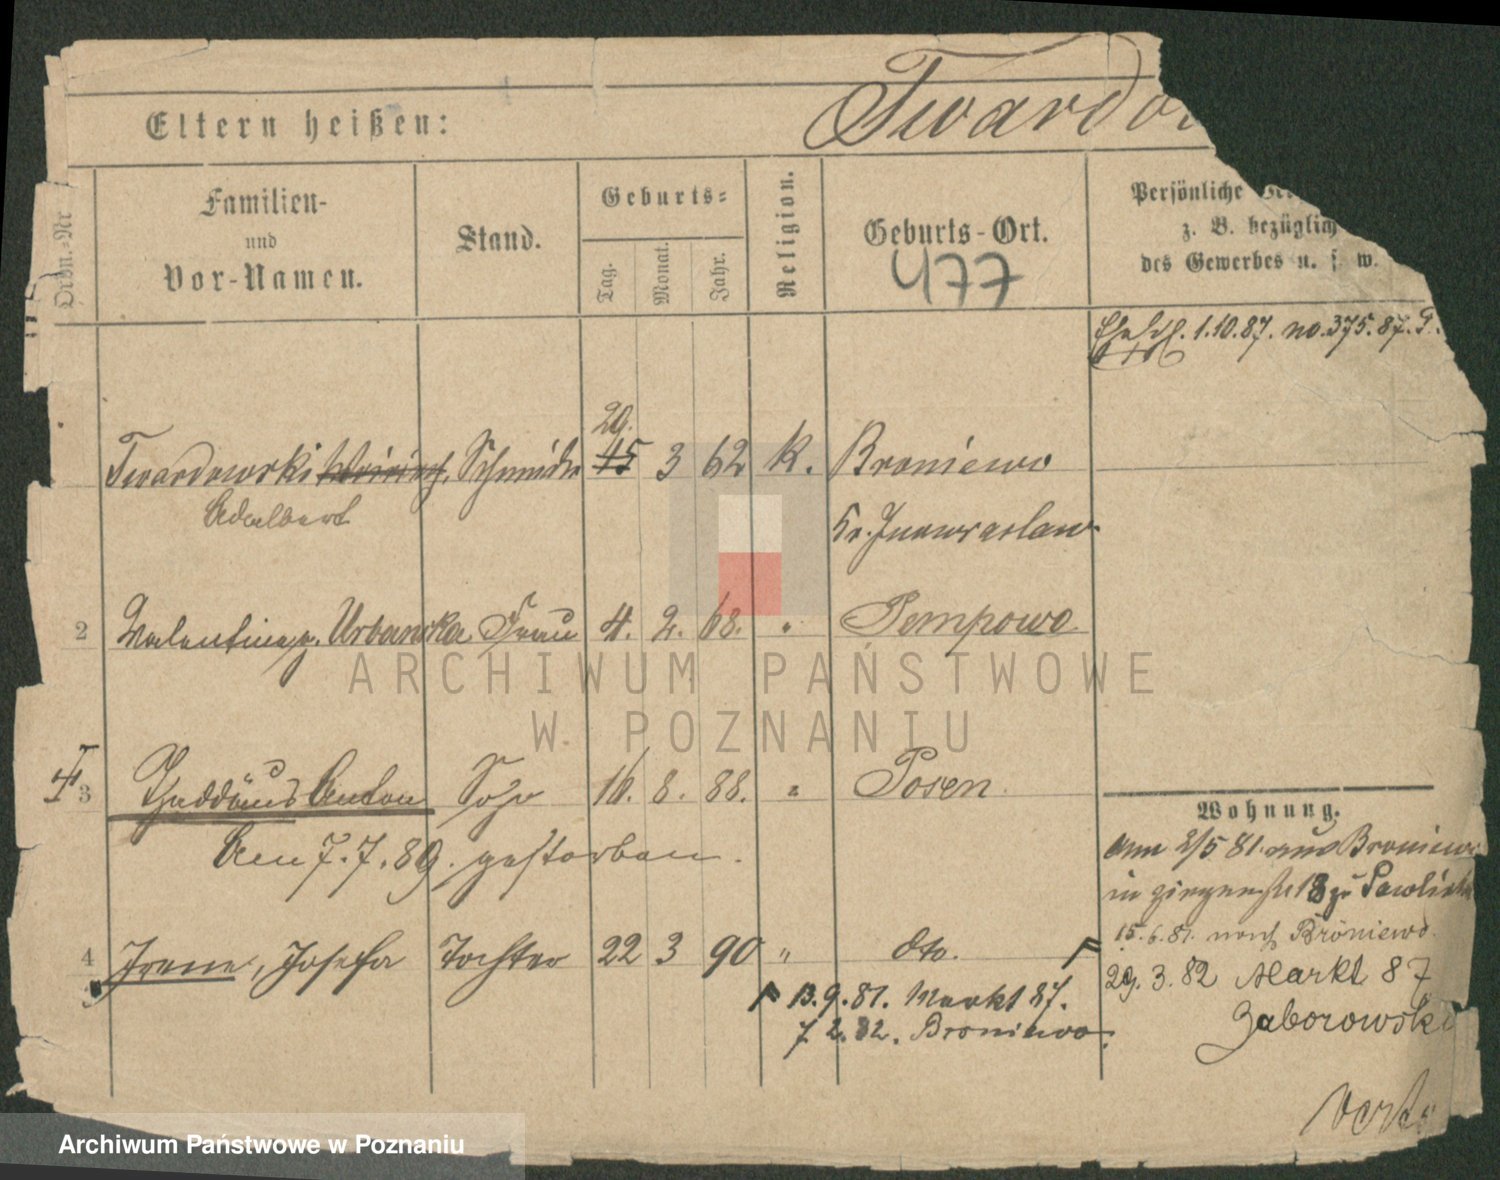 Twardo
Eltern heißen:
Ordn.-Nr
Familien-
und
Vor-Namen.
Stand.
Geburts-
Tag.
Monat.
Jahr.
Religion.
Geburts-Ort.
477
Persönliche
z. B. bezüglich
des Gewerbes u. s. w.
1.10.87. no. 375. 87. P.
29.
Twardowski Schmied 15 3 62 K. Broniewo
Adalbert
Kr. Inowraclaw
2 Valentine g. Urbanska Frau 4. 2. 68. " Pempowo
3 Thaddäus Anton Sohn 10. 8. 88. " Posen
Am 7.7.89. gestorben.
4 Irene, Josefa Tochter 22 3 90 " dto.
13.9.81. Markt 87.
7 2.82. Broniewo.
Wohnung.
am 2/5 81. aus Broniewo
in 18 zu
15.6.81. nach Broniewo.
29.3.82 Markt 87
Zaborowski
verte
ARCHIWUM PAŃSTWOWE
W POZNANIU
Archiwum Państwowe w Poznaniu